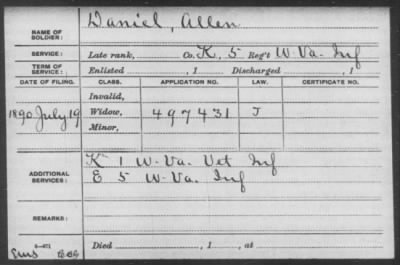 NAME OF SOLDIER: Daniel, Allen
SERVICE: Late rank, Co. K, 5 Reg't W. Va. Inf
TERM OF SERVICE: Enlisted , 1 Discharged , 1
DATE OF FILING. CLASS. APPLICATION NO. LAW. CERTIFICATE NO.
Invalid,
1890 July 19 Widow, 497431 J
Minor,
K 1 W. Va. Vet Inf
ADDITIONAL SERVICES: E 5 W. Va. Inf
REMARKS:
3-471
Died , 1 , at